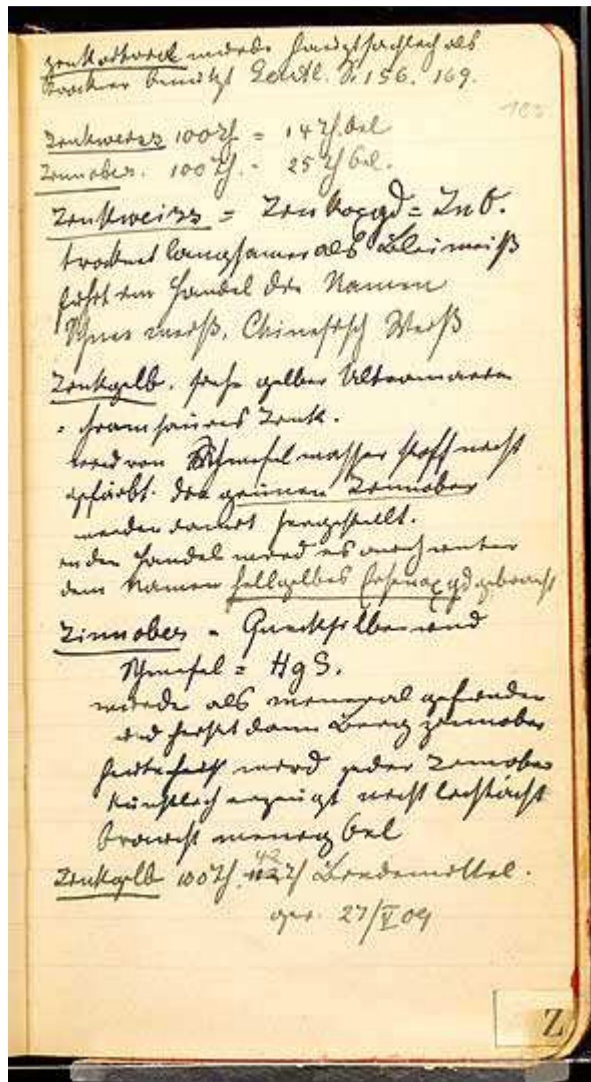 Zinkoxyd wurde hauptsächlich als
Trockner benützt S. 156. 169.
105
Zinkweiss 100 Th = 14 Th. Oel
Zinnober. 100 Th. - 25 Th Oel.
Zinkweiss = Zinkoxyd = ZnO.
trocknet langsamer als Bleiweiß
führt im Handel den Namen
Schneeweiß, Chinesisch Weiß
Zinkgelb. siehe gelber Ultramarin
= chromsaures Zink.
wird von Schwefelwasserstoff nicht
gefärbt. die grünen Zinnober
werden damit hergestellt.
in den Handel wird es auch unter
dem Namen hellgelbes gebracht
Zinnober = Quecksilber und
Schwefel = HgS.
wurde als Mineral gefunden
und heißt dann Bergzinnober
wird jeder Zinnober
künstlich erzeugt nicht lichtächt
braucht wenig Oel
Zinkgelb 100 Th. 42 Th Bindemittel.
27/V 09
Z